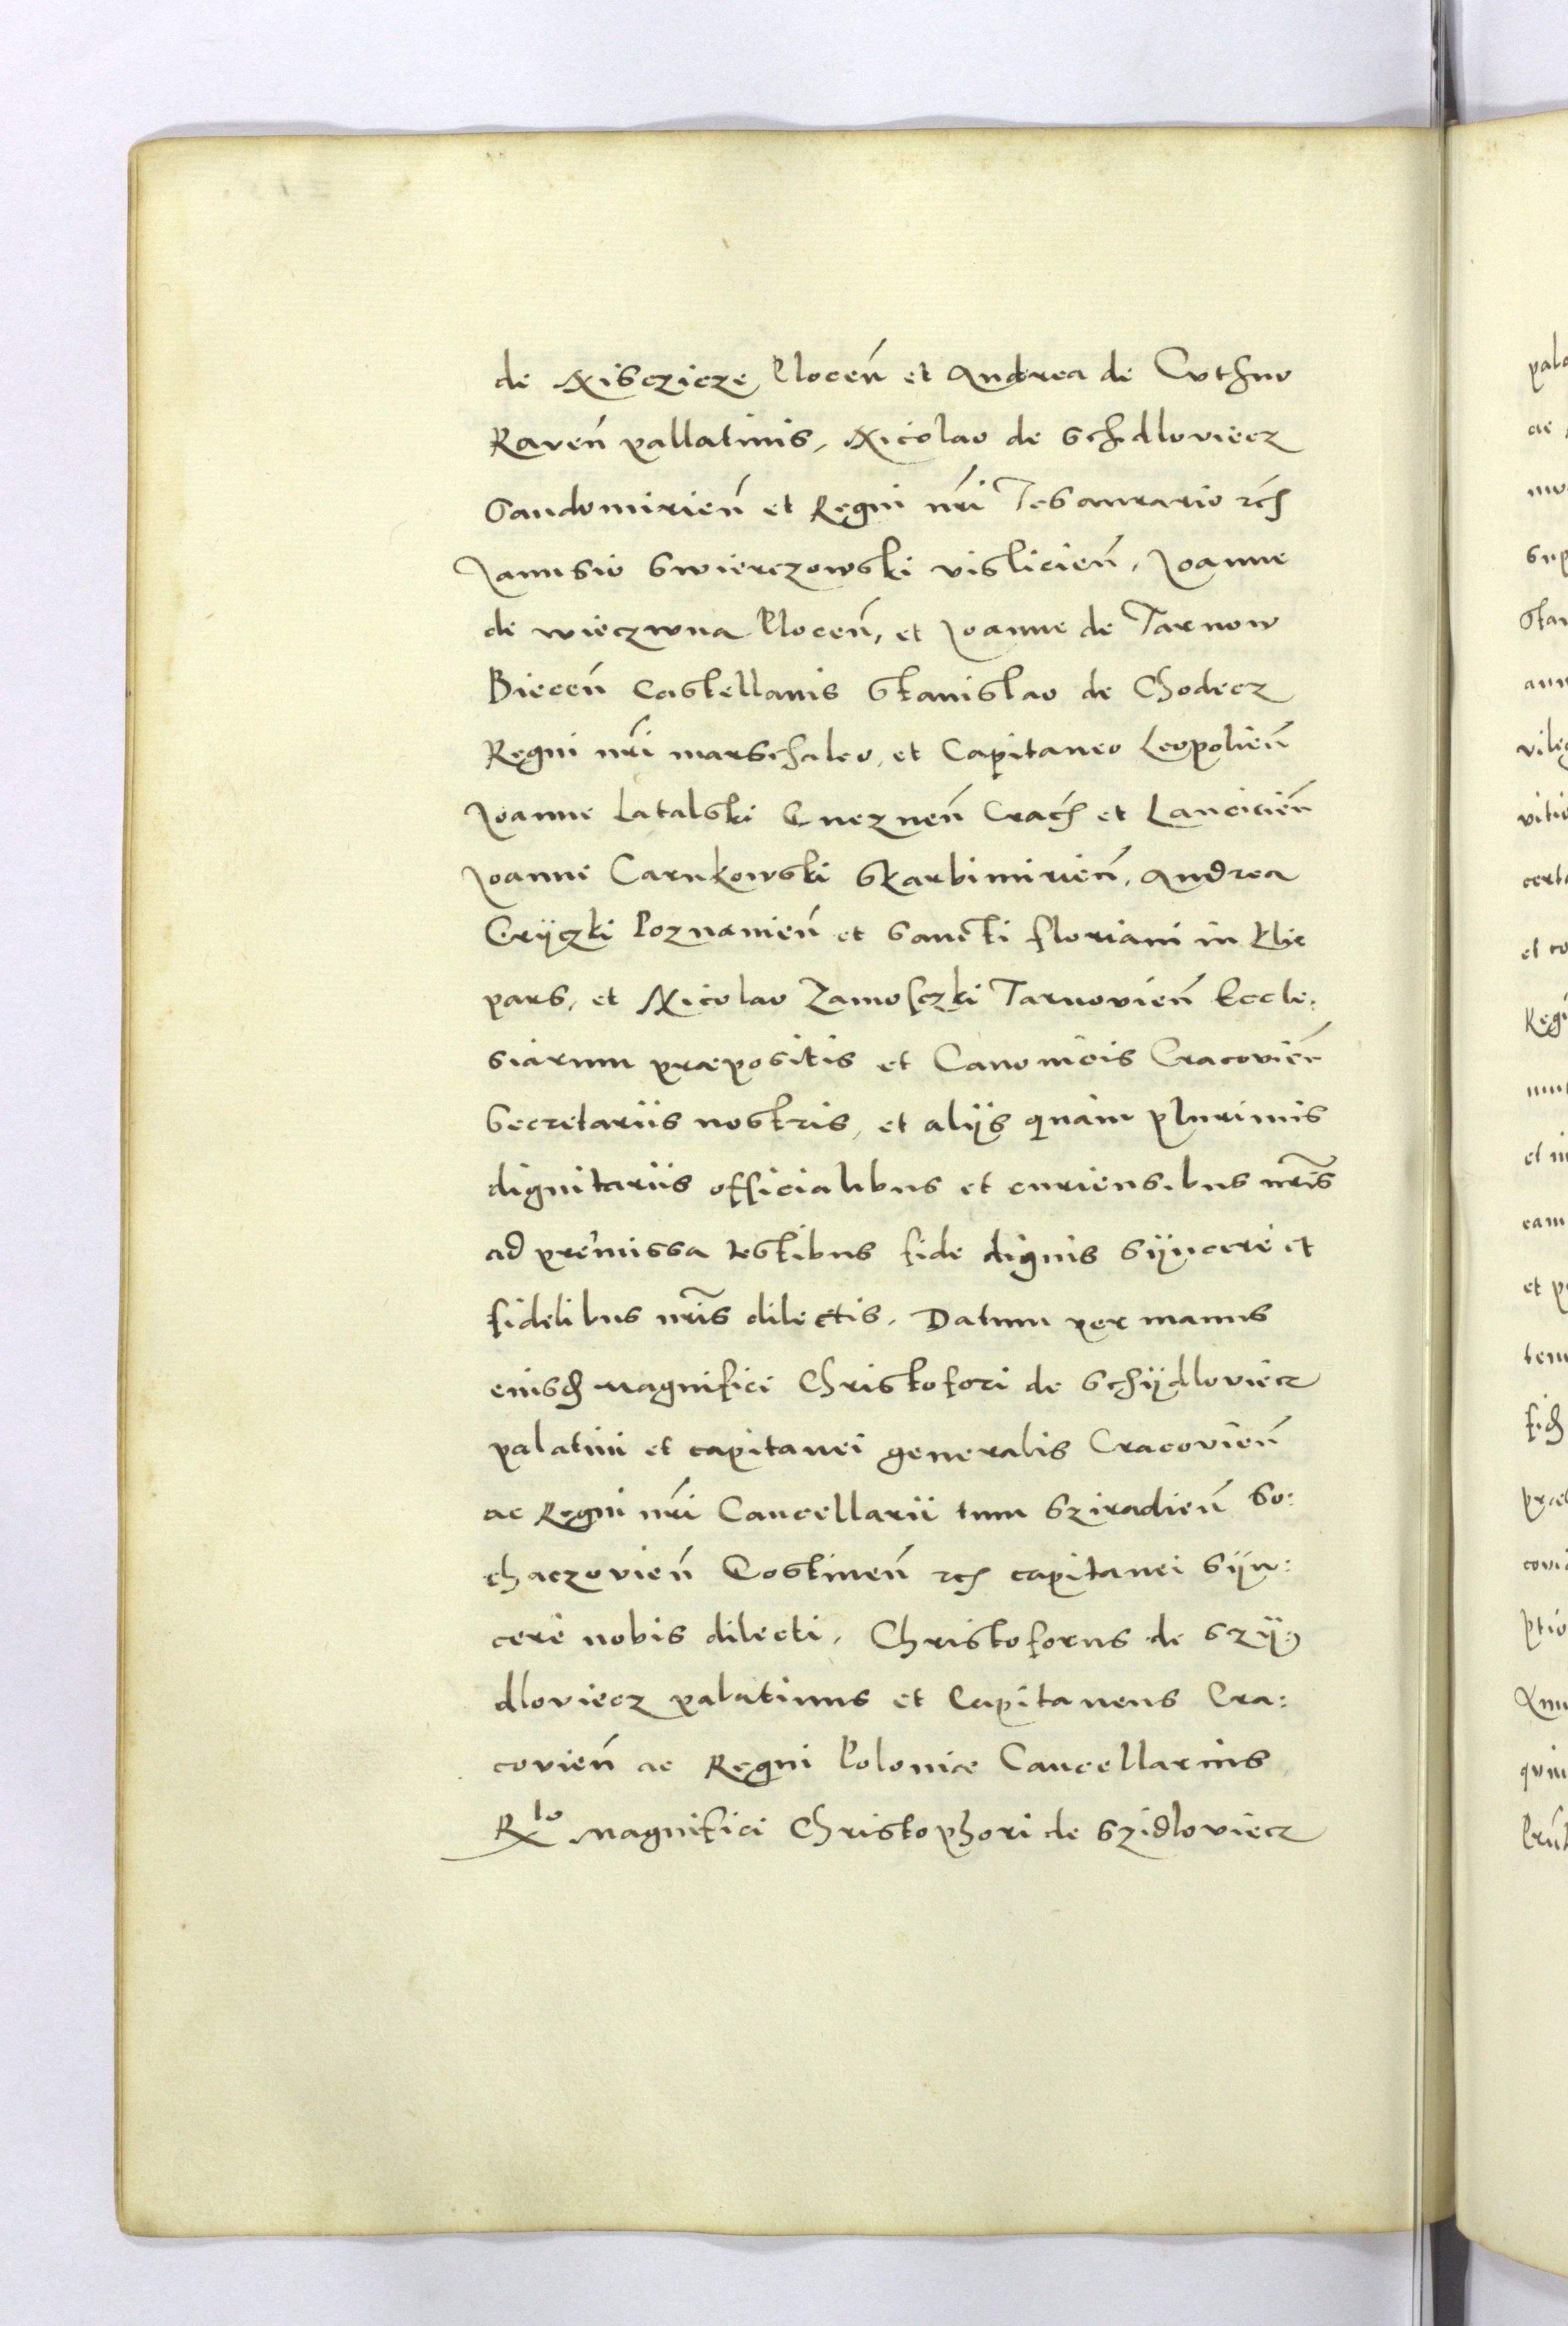 de Nisczicze, Plocen̄ et Andrea de Cvthno
Raven̄ pallatinis, Nicolao de Schdloviecz
Sandomirien̄ et Regni nr̄i Tesaurario
Janusio Swierczowski vislicien̄, Joanne
de wieczwna Plocen̄, et Joanne de Tarnow
Biecen̄ Castellanis Stanislao de Chodecz
Regni nr̄i marschalco, et Capitaneo Leopolien̄
Joanne Latalski Gneznen̄ et Lancicien̄
Joanne Carnkowski Skarbimirien̄, Andrea
Crÿczki Poznanien̄ et Sancti floriani in Klie
pars, et Nicolao Zamosczki Tarnovien̄ Eccle:
siarum præpositis et Canonicis Cracovien̄
Secretariis nostris, et alijs quam plurimis
dignitariis officialibus et curiensibus nr̄is
ad premissa testibus fide dignis sÿncere et
fidelibus nr̄is dilectis. Datum per manus
eiusd Magnifici Christofori de Schÿdloviecz
palatini et capitanei generalis Cracovien̄
ac Regni nr̄i Cancellarii tum Sziradien̄ So:
chaczovien̄ Gostinen̄ capitanei sÿn:
cere nobis dilecti. Christoforus de Szÿ:
dloviecz palatinus et Capitaneus Cra:
covien̄ ac Regni Poloniæ Cancellarius
R^lo Magnifici Christophori de Szidloviecz